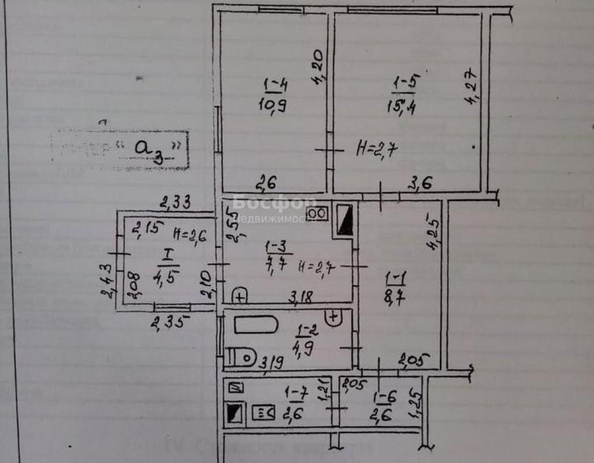 1-4
10,9
4,20
2,6
1-5
15,4
4,27
H=2,7
3,6
"а₃"
Босфор
Недвижимость
2,33
2,15
H=2,6
I
4,5
2,43
2,08
2,10
2,35
2,55
1-3
7,7
H=2,7
3,18
4,25
1-1
8,7
1-2
4,9
3,19
2,05
1-7
2,6
1,21
2,05
1-6
2,6
1,25